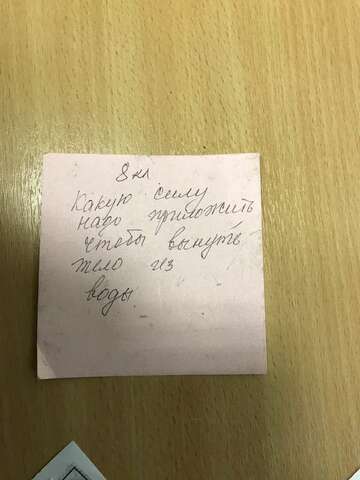 8 кл
Какую силу
надо приложить
чтобы вынуть
тело из
воды